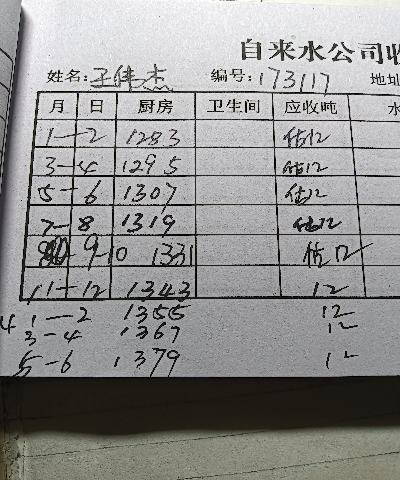 自来水公司收
姓名: 王伟杰 编号: 173117 地址
月 日 厨房 卫生间 应收吨 水
1—2 1283 估12
3—4 1295 估12
5—6 1307 估12
7—8 1319 估12
9—10 1331 估12
11—12 1343 12
4 1—2 1355 12
3—4 1367 12
5—6 1379 12